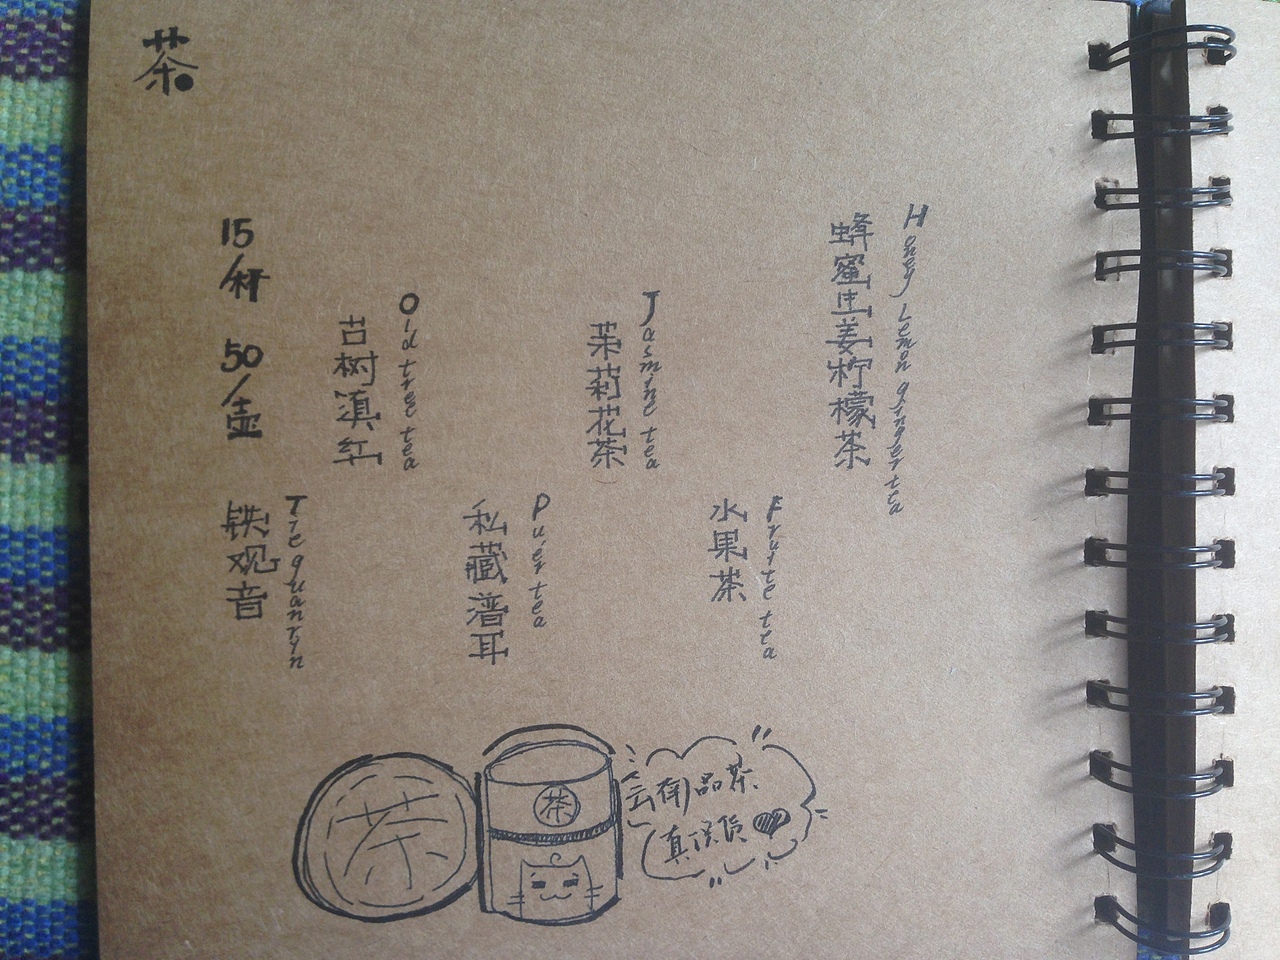 茶
15/杯 50/壶
铁观音
Tie quanyin
古树滇红
Old tree tea
私藏普耳
Puér tea
茉莉花茶
Jasmine tea
水果茶
Fruite tea
蜂蜜生姜柠檬茶
Honey Lemon ginger tea
茶
茶
云南品茶